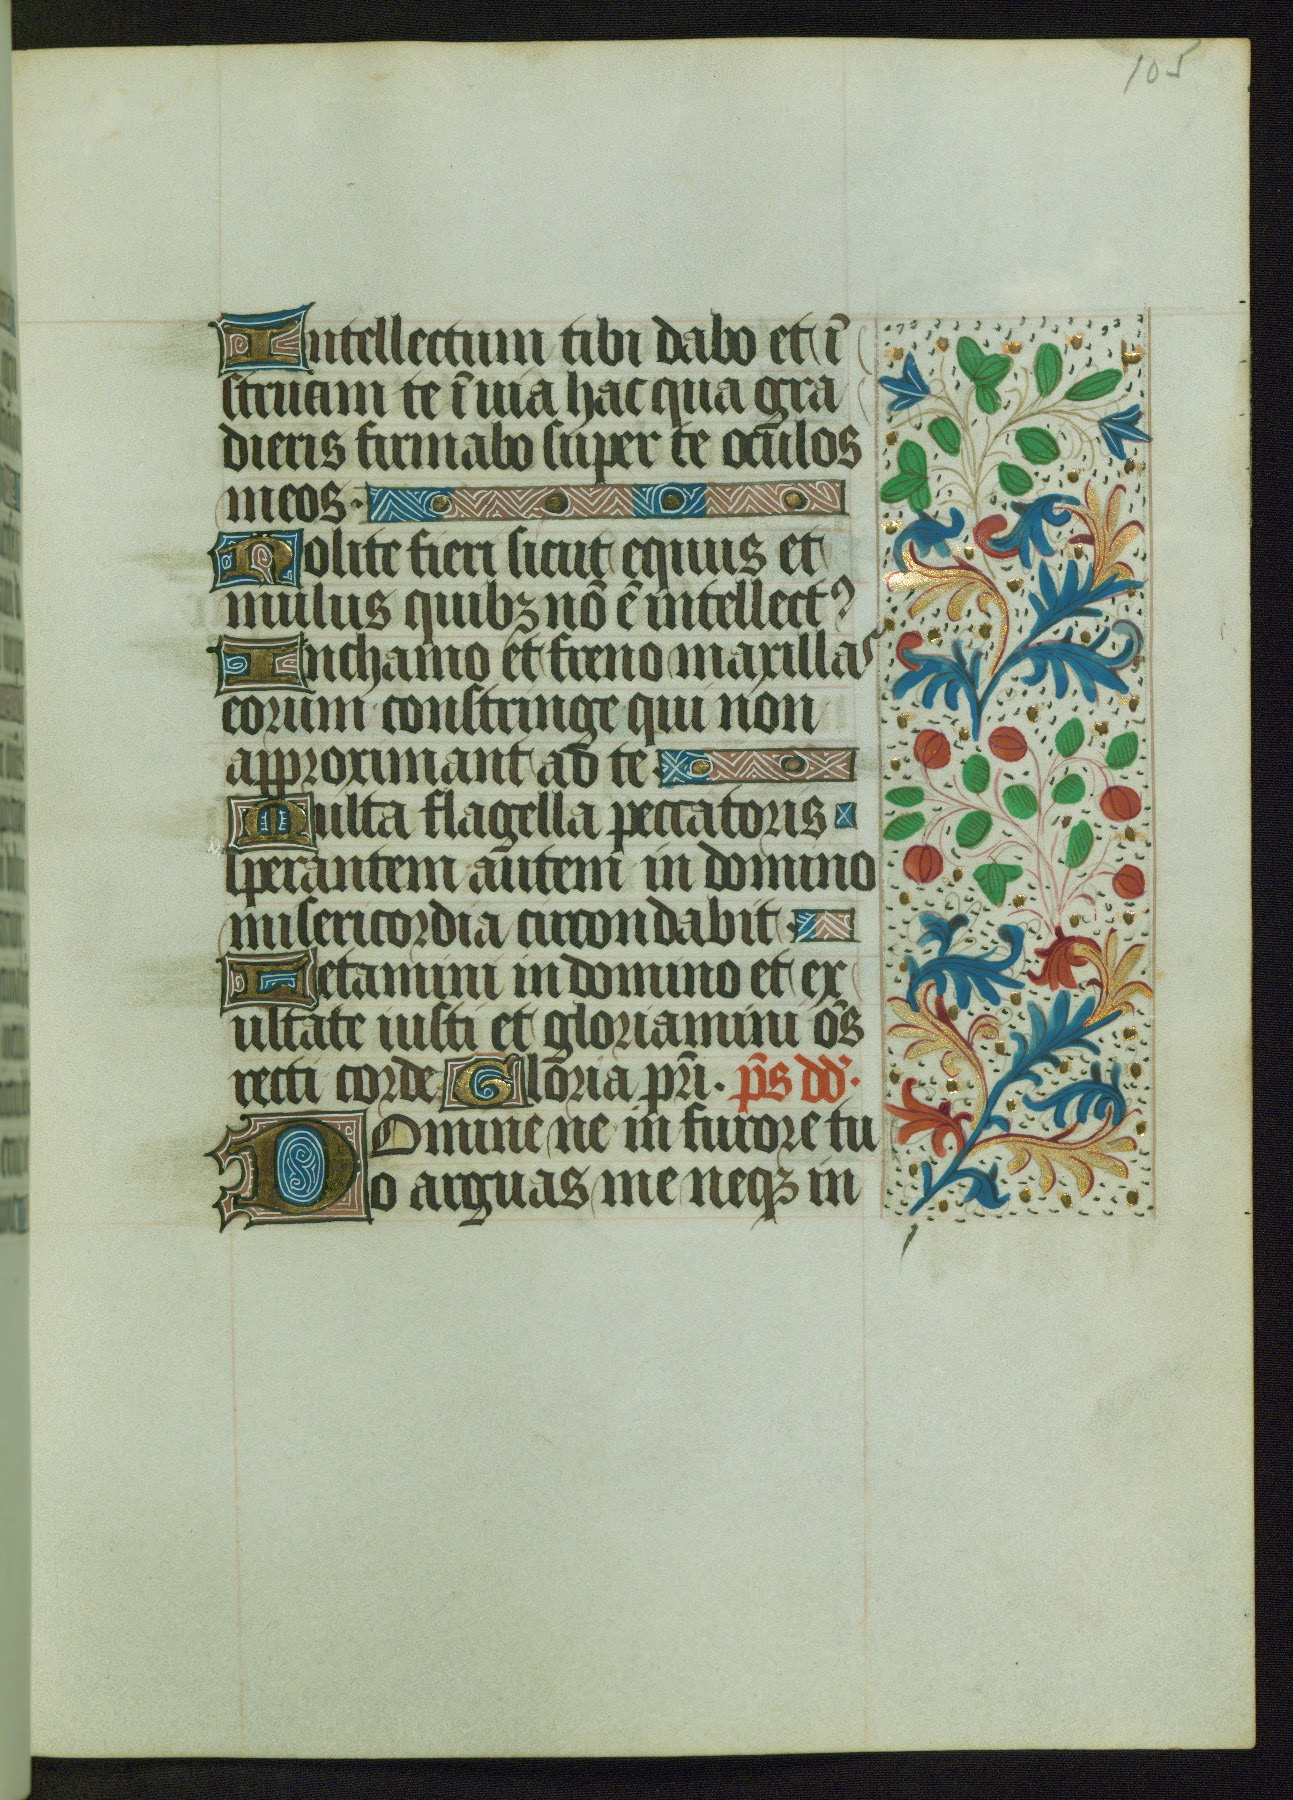 105
Intellectum tibi dabo et ī
struam te ī uia hac qua gra
dieris firmabo super te oculos
meos·
Nolite fieri sicut equus et
mulus quibꝫ nō ē intellectꝰ
In chamo et freno maxillas
eorum constringe qui non
approximant ad te
Multa flagella peccatoris
sperantem autem in domino
misericordia circondabit·
Letamini in domino et ex
ultate iusti et gloriamini oēs
recti corde Gloria pr̄i· p̄s dd̄·
Domine ne in furore tu
o arguas me neqꝫ in